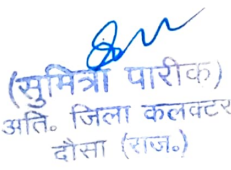 (सुमित्रा पारीक)
अति. जिला कलक्टर
दौसा (राज.)